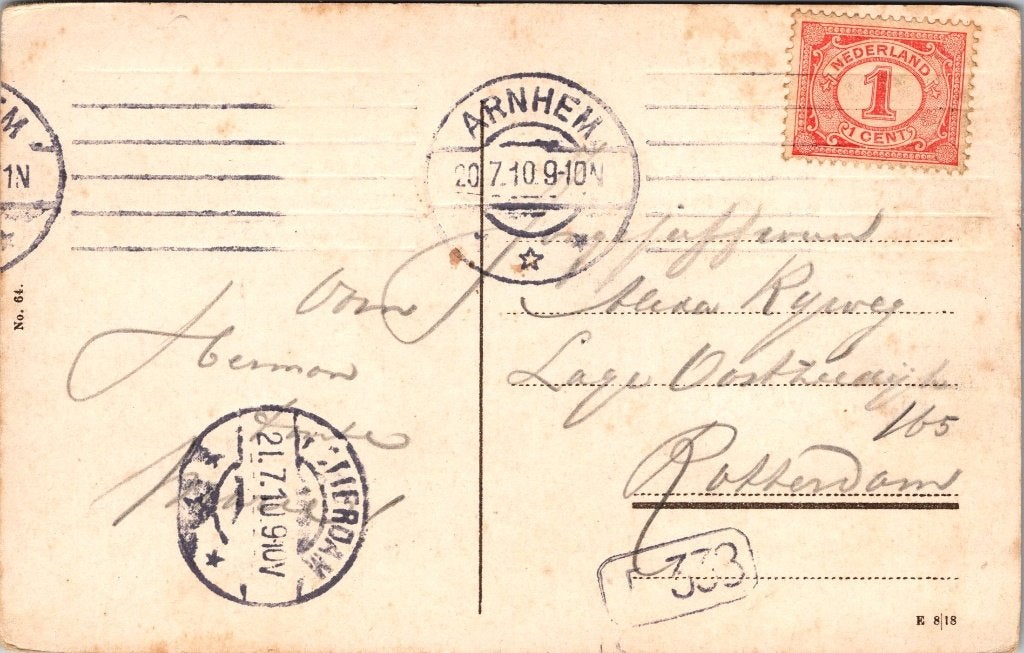 NEDERLAND
1
1 CENT
ARNHEM
20.7.10.9-10N
M
1N
No. 64.
Oom
Herman
Tante
Jongejuffrouw
Alexa Ryweg
Lage Oostzeedijk
165
Rotterdam
21.7.10.9-10V
333
E 8|18